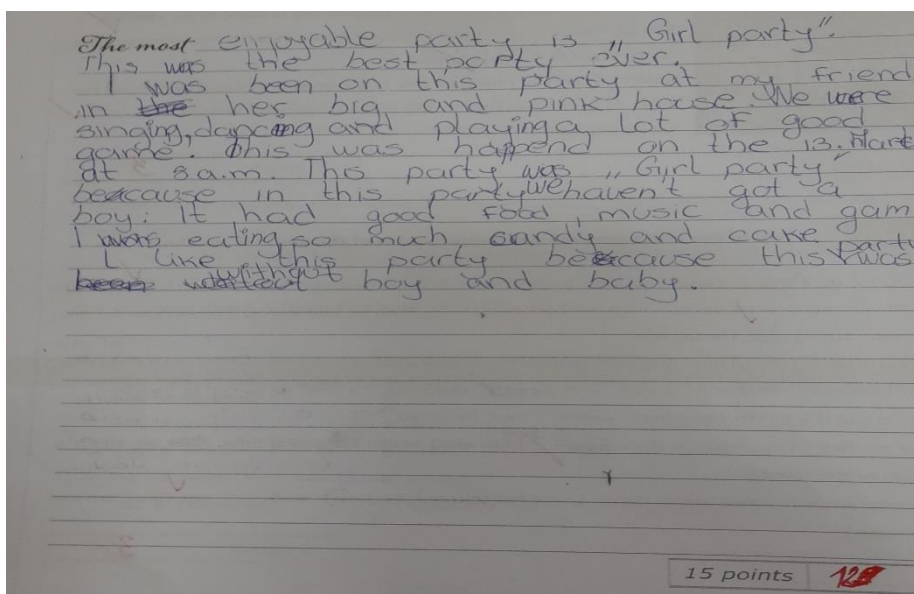 The most enjoyable party is „Girl party".
This was the best party ever.
I was been on this party at my friend
in the her big and pink house. We were
singing, dancing and playing a lot of good
game. This was happend on the 13. Mart
at 8 a.m. This party was „Girl party"
beacause in this party we haven't got a
boy. It had good food, music and gam
I was eating so much candy and cake
I like this party because this party was
without boy and baby.
15 points 12